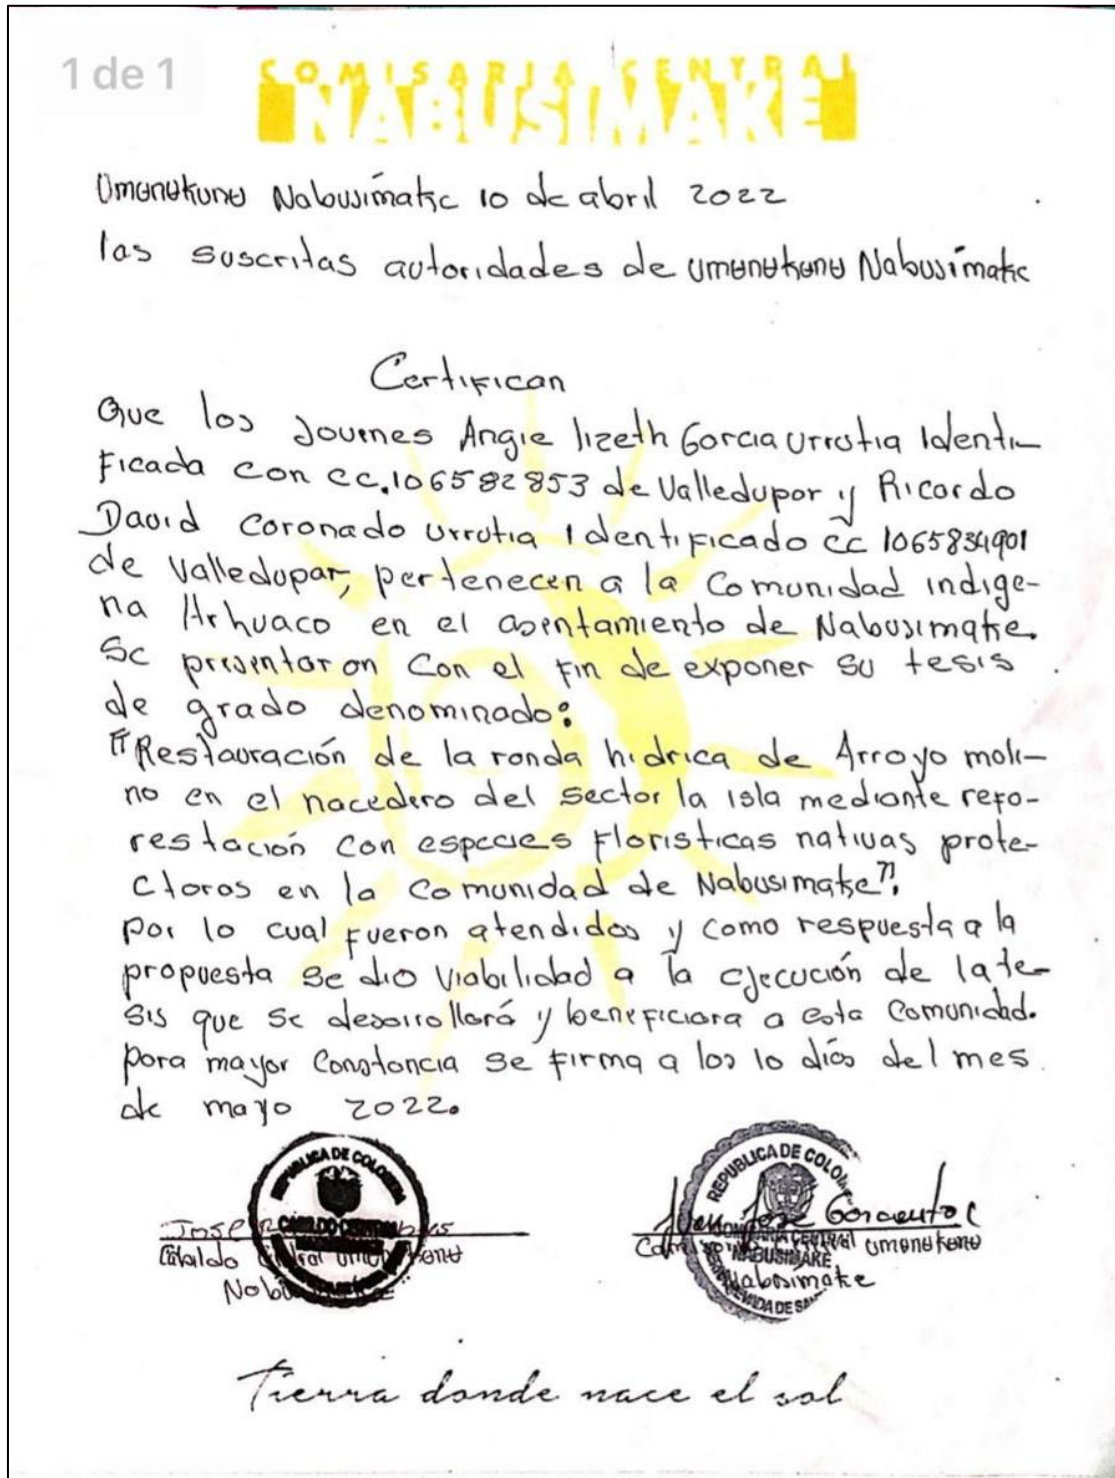 1 de 1
COMISARIA CENTRAL
NABUSIMAKE
Umʉnʉkunʉ Nabusímake 10 de abril 2022
las suscritas autoridades de umʉnʉkunʉ Nabusímake
Certifican
Que los Jovenes Angie lizeth Garcia Urrutia Identi-
ficada con cc.106582853 de Valledupar y Ricardo
David Coronado Urrutia Identificado cc 1065834901
de Valledupar, pertenecen a la Comunidad indige-
na Arhuaco en el asentamiento de Nabusimake.
Se presentaron con el fin de exponer su tesis
de grado denominado:
"Restauración de la ronda hidrica de Arroyo moli-
no en el nacedero del sector la isla mediante refo-
restación con especies floristicas nativas prote-
ctoras en la Comunidad de Nabusimake".
por lo cual fueron atendidos y como respuesta a la
propuesta se dio viabilidad a la ejecución de la te-
sis que se desarrollará y beneficiara a esta Comunidad.
para mayor Constancia se firma a los 10 días del mes
de mayo 2022.
REPUBLICA DE COLOMBIA
CABILDO CENTRAL
Jose
Cabildo
REPUBLICA DE COLOM
Juan José
CENTRAL umʉnʉkunʉ
NABUSIMAKE
Nabusimake
Tierra donde nace el sol